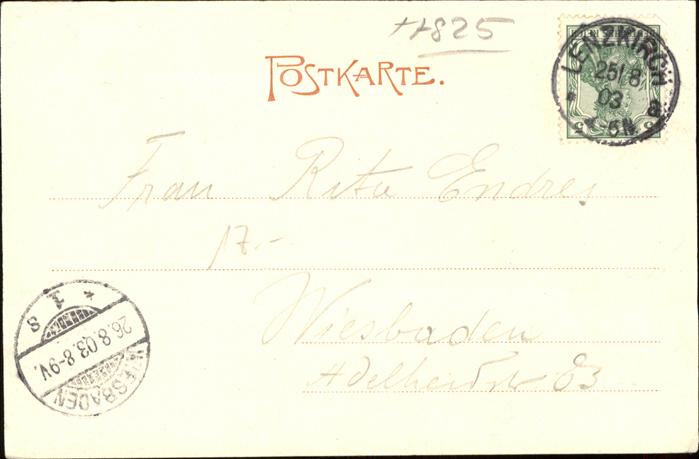 ++825
POSTKARTE.
LENZKIRCH
25/8
03
4-5N.
a
Frau Rita Endres
17.-
Wiesbaden
Adelheidstr 83
* 1 s
26.8.03.8-9V.
WIESBADEN